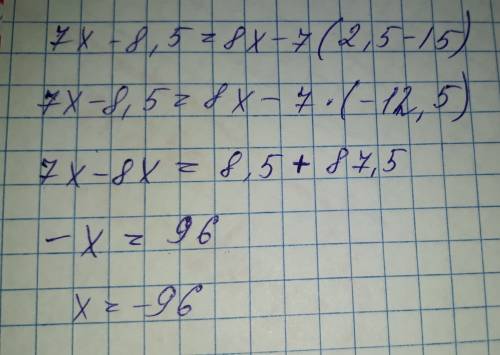 7x - 8,5 = 8x - 7(2,5 - 15)
7x - 8,5 = 8x - 7·(-12,5)
7x - 8x = 8,5 + 87,5
-x = 96
x = -96